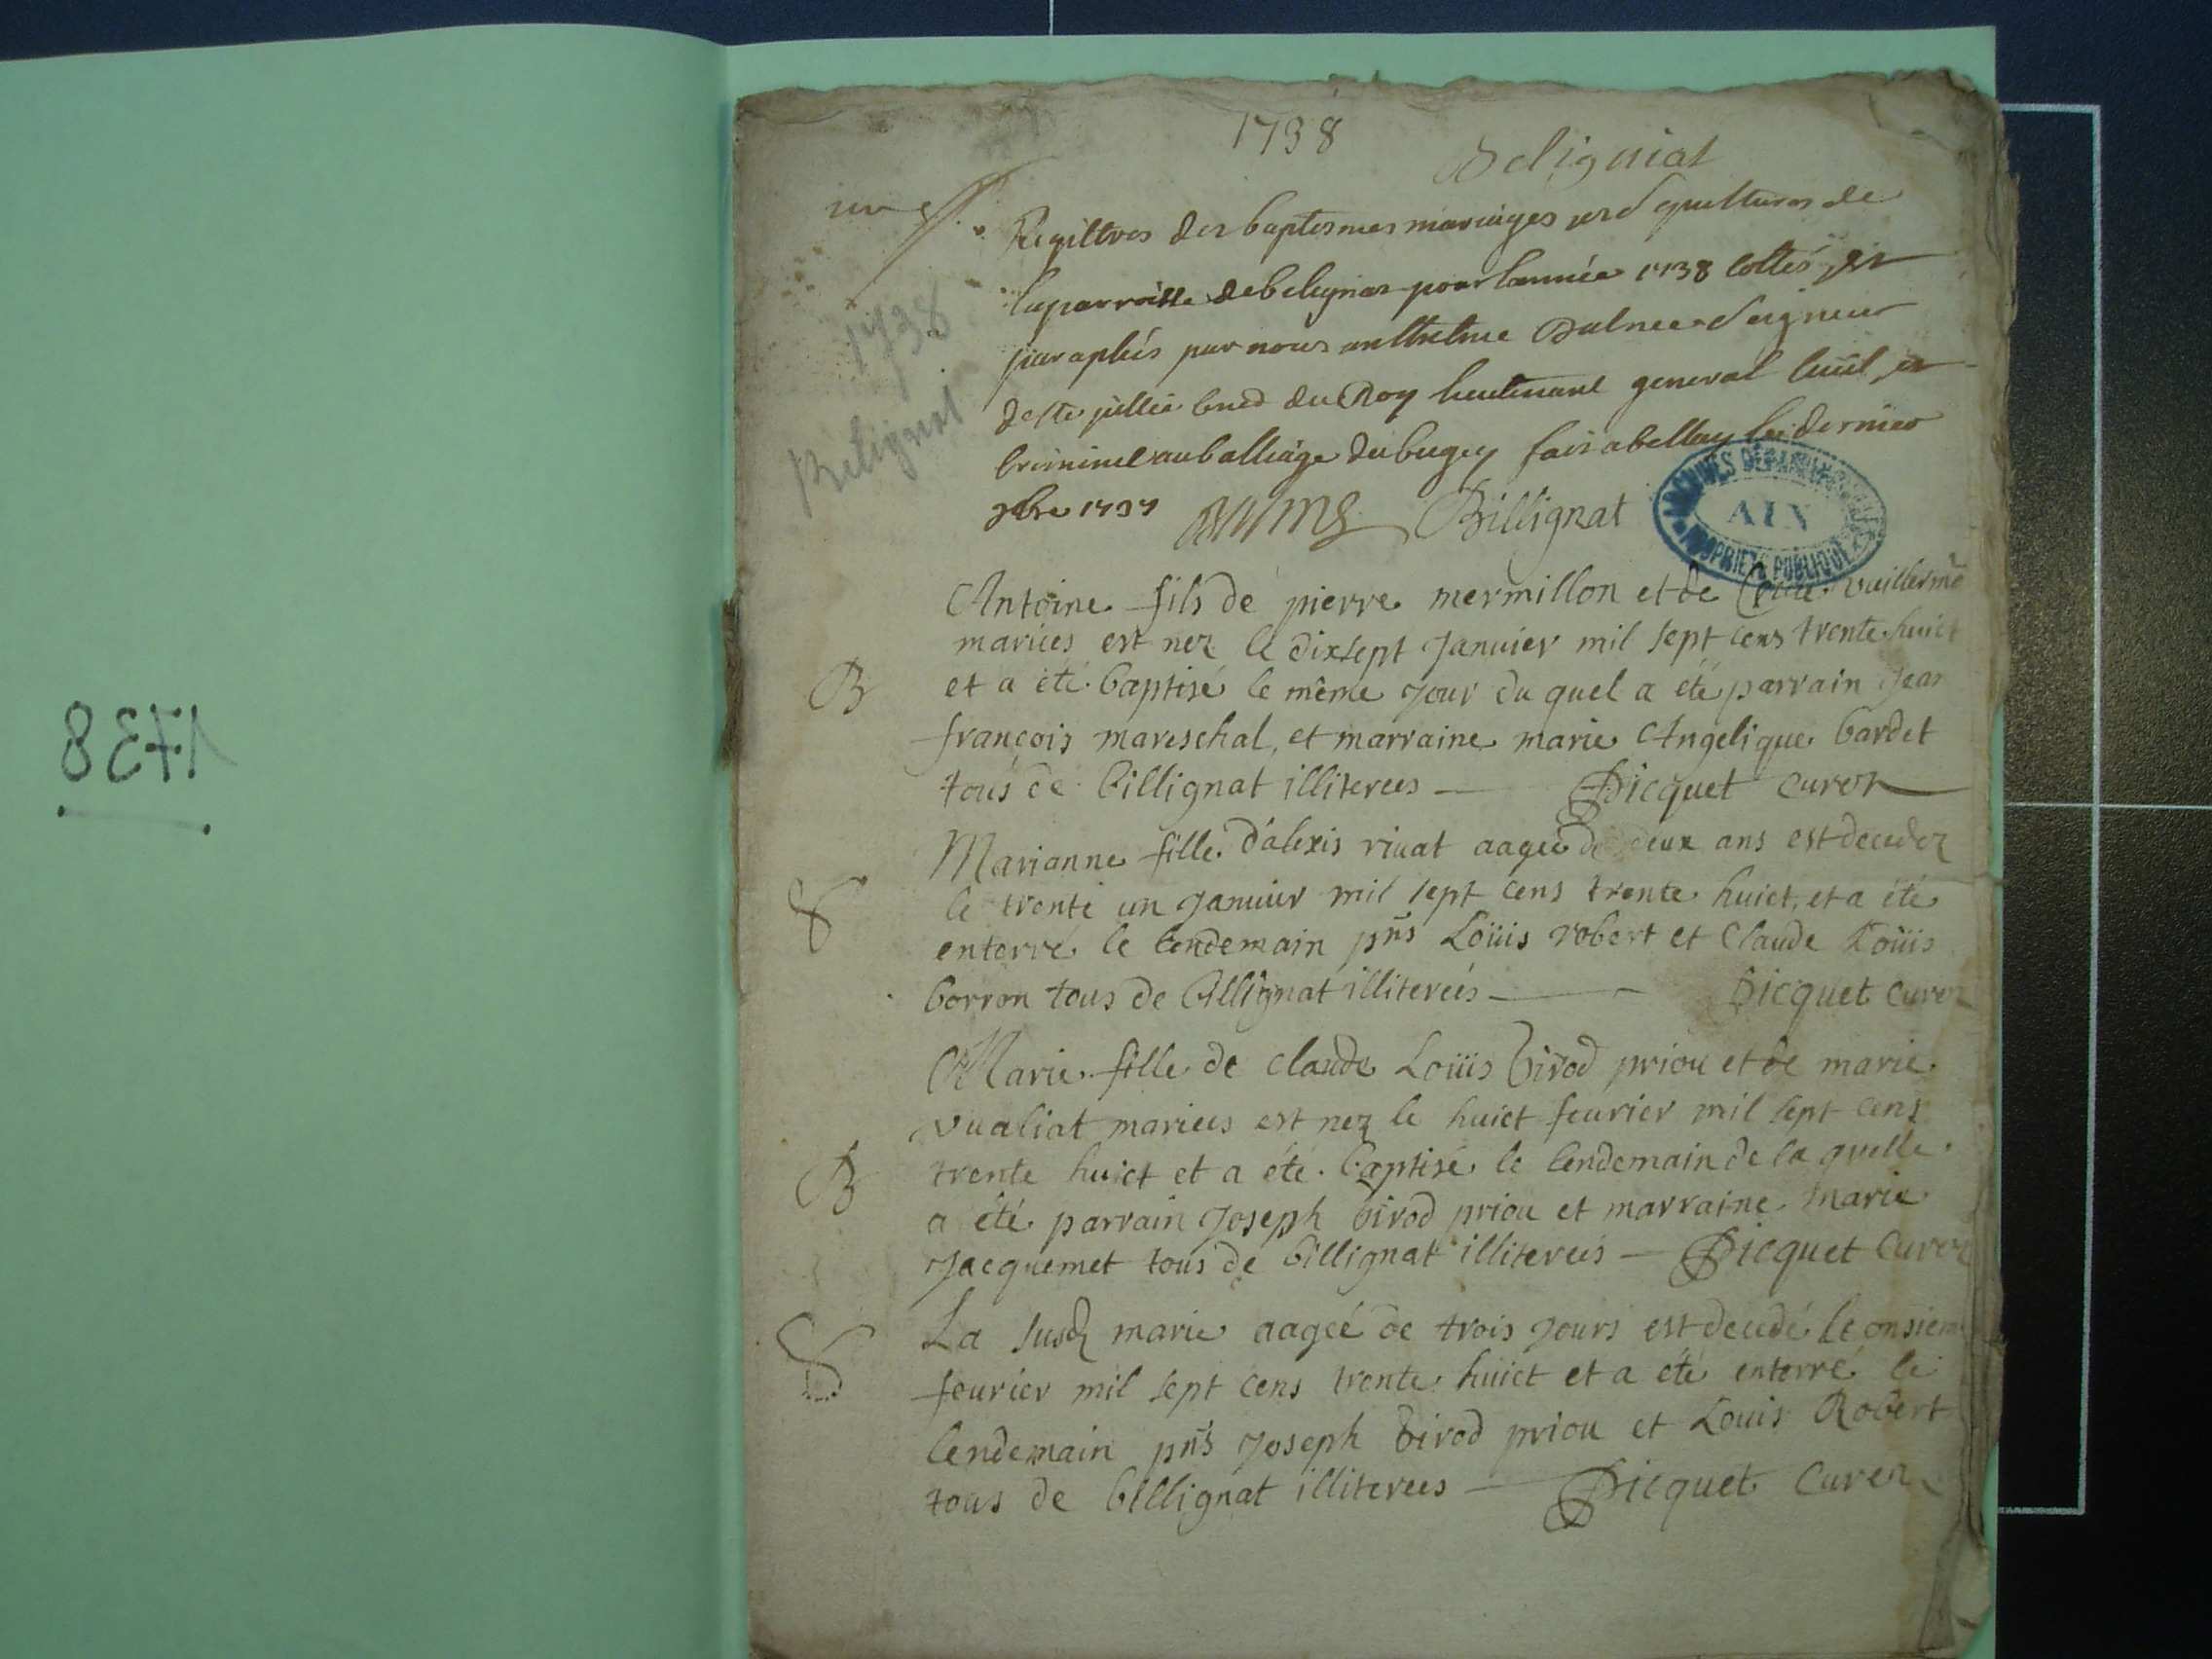 1738
1738
Belignat
une
Registres des baptesmes mariages et sepultures de
la parroisse de belignat pour lannée 1738 cottés et
paraphés par nous anthelme Balme Seigneur
de Ste jullie conser du Roy lieutenant general civil et
criminel au balliage du bugey fait a belley le dernier
9bre 1737
Billignat
1738
Belignat
ARCHIVES DÉPARTEMENTALES
AIN
PROPRIÉTÉ PUBLIQUE
Antoine fils de pierre mermillon et de vuillerme
mariées est nez le dixsept Janvier mil sept cens trente huict
B
et a été baptisé le même jour du quel a été parrain Jean
françois mareschal, et marraine marie Angelique bardet
tous de billignat illiterees — Dicquet curez
Marianne fille d'alexis rivat aageé de deux ans est decedez
S
le trente un Janvier mil sept cens trente huict, et a été
enterré le lendemain pns Loüis robert et Claude Loüis
borron tous de billignat illitereés — Dicquet curez
Marie fille de claude Loüis birod priou et de marie
vualiat mariees est nez le huict feurier mil sept cens
B
trente huict et a été baptisé le lendemain de la quelle
a été parrain Joseph birod priou et marraine marie
Jacquemet tous de billignat illitereés — Dicquet Curez
S
La susd marie aageé de trois jours est decedé le onsiem
feurier mil sept cens trente huict et a été enterré le
lendemain pns Joseph birod priou et Louis Robert
tous de billignat illiterees — Dicquet Curez